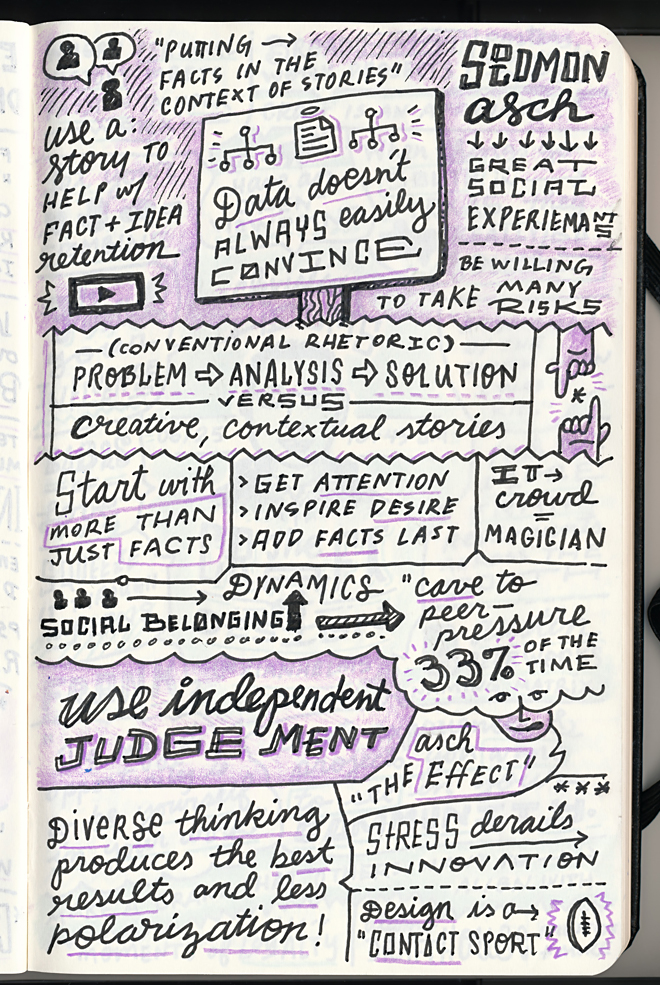 "PUTTING →
FACTS IN THE
CONTEXT OF STORIES"
use a:
story TO
HELP w/
FACT + IDEA
retention
Data doesn't
ALWAYS easily
CONVINCE
SOLOMON
asch
↓ ↓ ↓ ↓ ↓ ↓
GREAT
SOCIAL
EXPERIEMANTS
BE WILLING
TO TAKE MANY
RISKS
— (CONVENTIONAL RHETORIC) —
PROBLEM ⇨ ANALYSIS ⇨ SOLUTION
VERSUS
creative, contextual stories
*
Start with
MORE THAN
JUST FACTS
> GET ATTENTION
> INSPIRE DESIRE
> ADD FACTS LAST
IT →
crowd
=
MAGICIAN
→ DYNAMICS
SOCIAL BELONGING
"cave to
peer-
pressure
33% OF THE
TIME
use independent
JUDGE MENT
asch
"THE EFFECT"
***
Diverse thinking
produces the best
results and less
polarization!
STRESS derails
INNOVATION
Design is a →
"CONTACT SPORT"